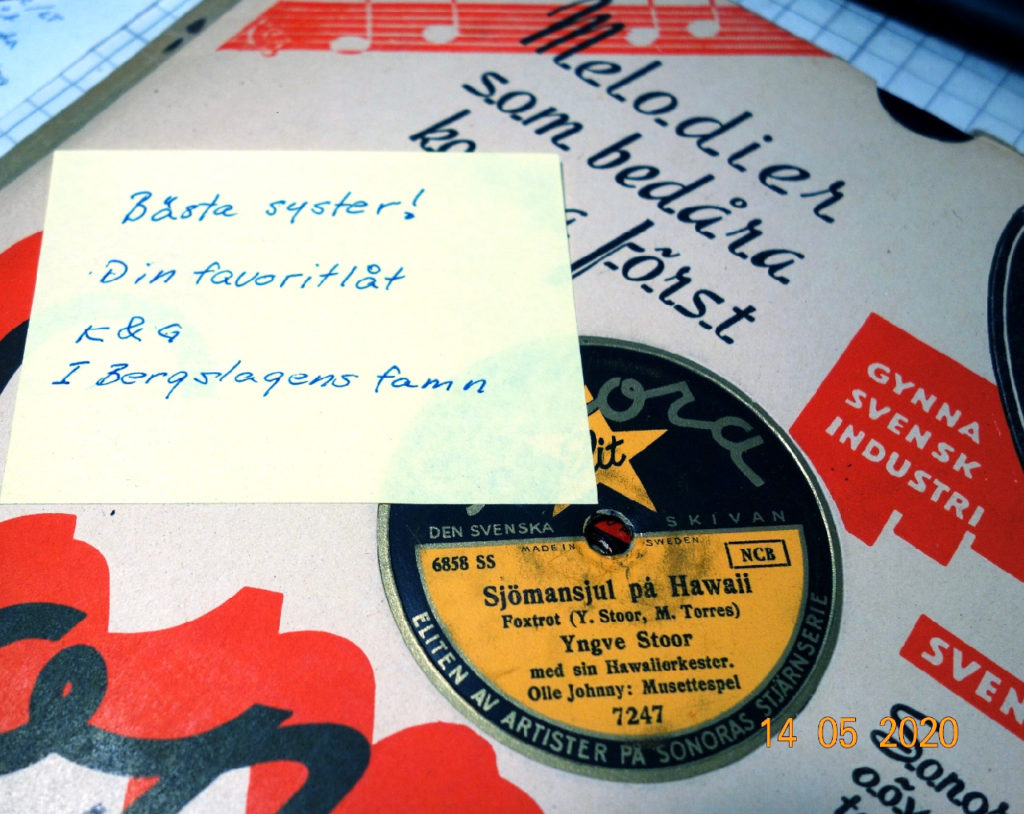 Melodier
som bedåra
först
Bästa syster!
Din favoritlåt
K & G
I Bergslagens famn
GYNNA
SVENSK
INDUSTRI
ora
lit
DEN SVENSKA SKIVAN
MADE IN SWEDEN
6858 SS
NCB
Sjömansjul på Hawaii
Foxtrot (Y. Stoor, M. Torres)
Yngve Stoor
med sin Hawaiiorkester.
Olle Johnny: Musettespel
7247
ELITEN AV ARTISTER PÅ SONORAS STJÄRNSERIE
SVEN
Sonor
14 05 2020